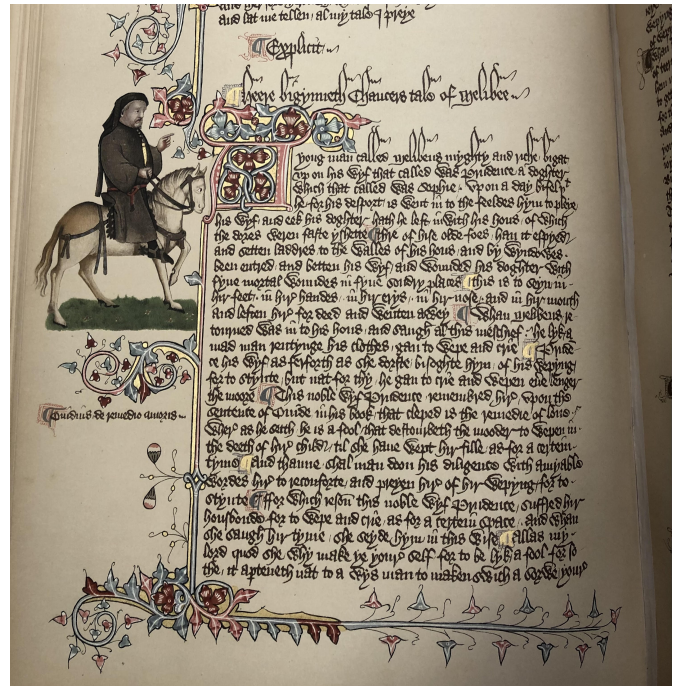 and lat me tellen al my tale I preye
Explicit
Heere bigynneth Chaucers tale of Melibee
A yong man called Melibeus myghty and riche bigat
vp on his wyf that called was Prudence a doghter
which that called was Sophie vpon a day bifel þt
he for his desport is went in to the feeldes hym to pleye
his wyf and eek his doghter hath he left inwith his hous of which
the dores weren faste yshette thre of hise olde foes han it espyed
and setten laddres to the walles of his hous and by wyndowes
been entred and betten his wyf and wounded his doghter with
fyue mortal woundes in fyue sondry places this is to seyn in
hir feet in hir handes in hir erys in hir nose and in hir mouth
and leften hir for deed and wenten awey Whan Melibeus re
tourned was in to his hous and saugh al this meschief he lyk a
mad man rentynge his clothes gan to wepe and crie Prude
ce his wyf as ferforth as she dorste bisoghte hym of his wepyng
for to stynte but nat for thy he gan to crie and wepen euere lenger
the moore This noble wyf Prudence remembred hire vpon the
sentence of Ouide in his book that cleped is the remedie of loue
wher as he seith he is a fool that destourbeth the mooder to wepen in
the deeth of hire child til she haue wept hir fille as for a certein
tyme and thanne shal man doon his diligence with amyable
wordes hire to reconforte and preyen hire of hir wepyng for to
stynte ffor which reson this noble wyf Prudence suffred hir
housbonde for to wepe and crie as for a certein space and whan
she saugh hir tyme she seyde hym in this wise Allas my
lord quod she why make ye your self for to be lyk a fool for so
the it aperteneth nat to a wys man to maken swich a sorwe your
Ouidius de remedio amoris